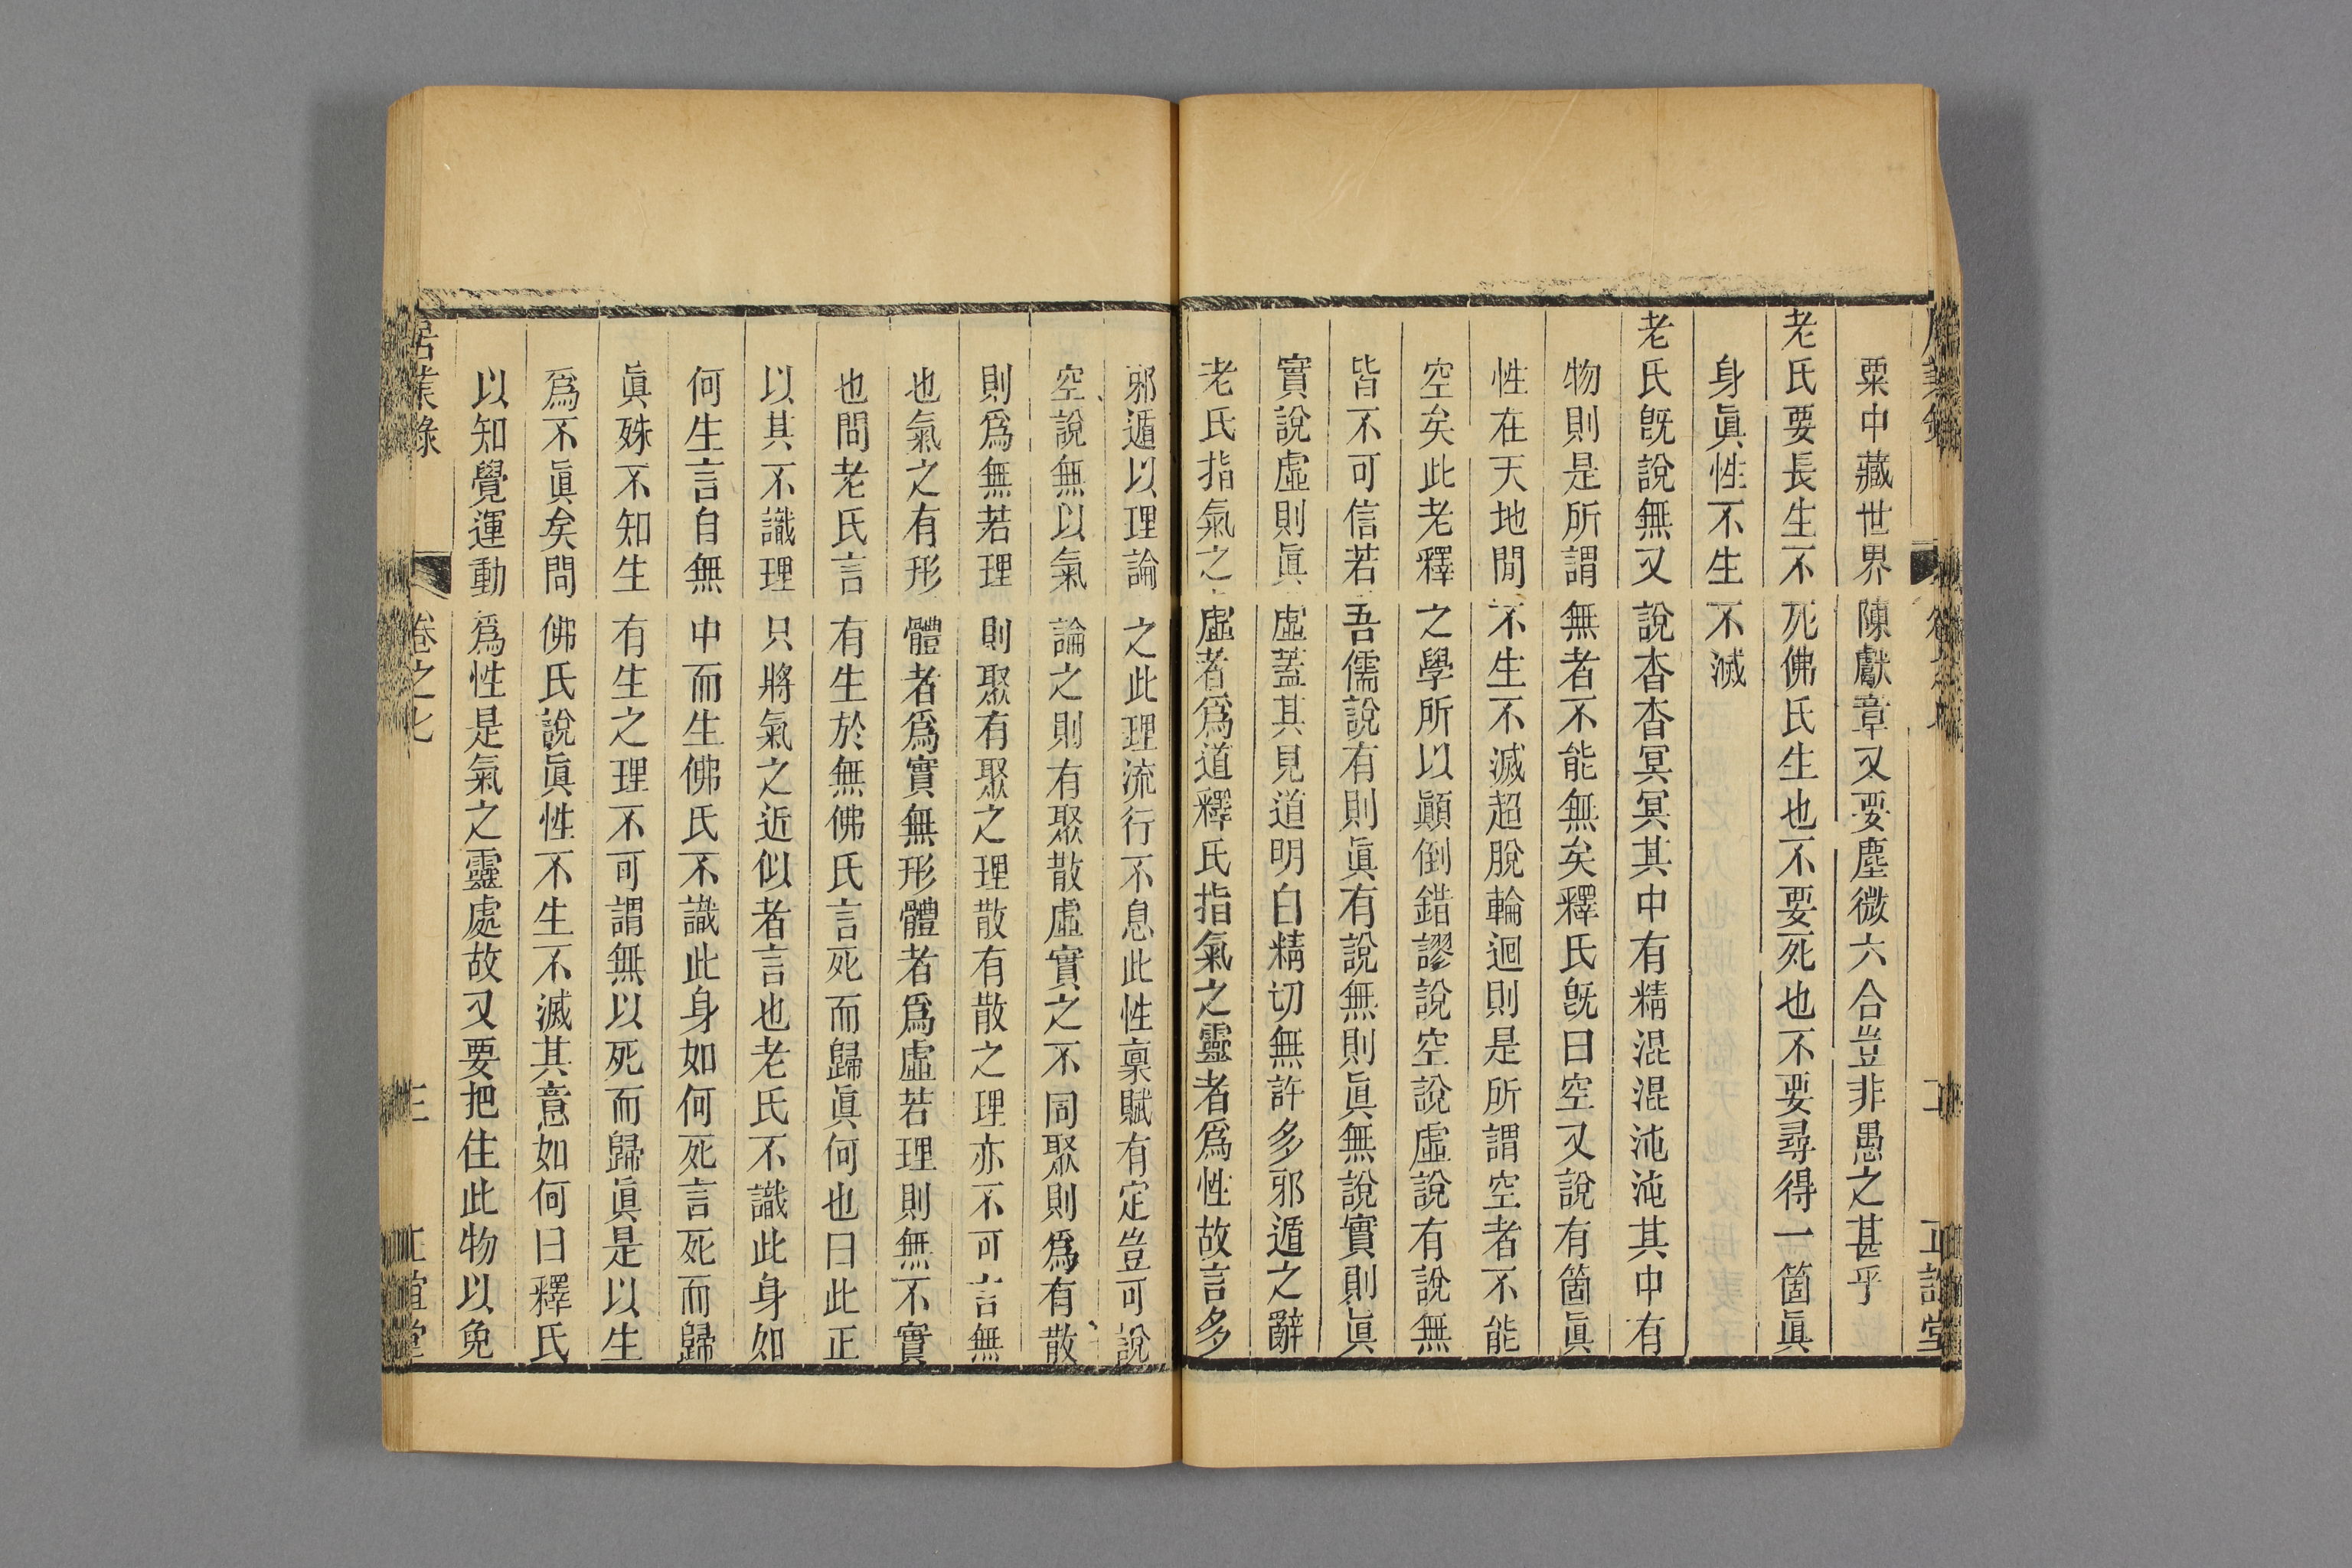 粟中藏世界陳獻章又要塵微六合豈非愚之甚乎
老氏要長生不死佛氏生也不要死也不要尋得一箇眞
身眞性不生不滅
老氏旣說無又說杳杳冥冥其中有精混混沌沌其中有
物則是所謂無者不能無矣釋氏旣曰空又說有箇眞
性在天地閒不生不滅超脫輪迴則是所謂空者不能
空矣此老釋之學所以顚倒錯謬說空說虛說有說無
皆不可信若吾儒說有則眞有說無則眞無說實則眞
實說虛則眞虛蓋其見道明白精切無許多邪遁之辭
老氏指氣之虛者爲道釋氏指氣之靈者爲性故言多
邪遁以理論之此理流行不息此性稟賦有定豈可說
空說無以氣論之則有聚散虛實之不同聚則爲有散
則爲無若理則聚有聚之理散有散之理亦不可言無
也氣之有形體者爲實無形體者爲虛若理則無不實
也問老氏言有生於無佛氏言死而歸眞何也曰此正
以其不識理只將氣之近似者言也老氏不識此身如
何生言自無中而生佛氏不識此身如何死言死而歸
眞殊不知生有生之理不可謂無以死而歸眞是以生
爲不眞矣問佛氏說眞性不生不滅其意如何曰釋氏
以知覺運動爲性是氣之靈處故又要把住此物以免
居業錄
卷之七
三
正誼堂